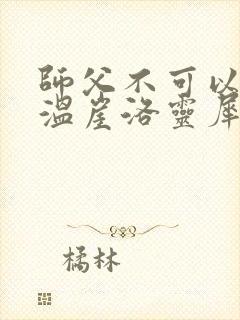 師父不可以
溫崖洛靈犀
橘林